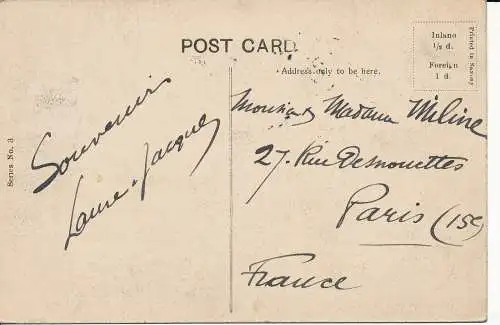 POST CARD
Address only to be here.
Inland
½ d.
Foreign
1 d.
Printed in Saxony
Series No. 3
Souvenir
Laure-Jacques
Monsieur & Madame Miline
27. Rue Desnouettes
Paris (15e)
France